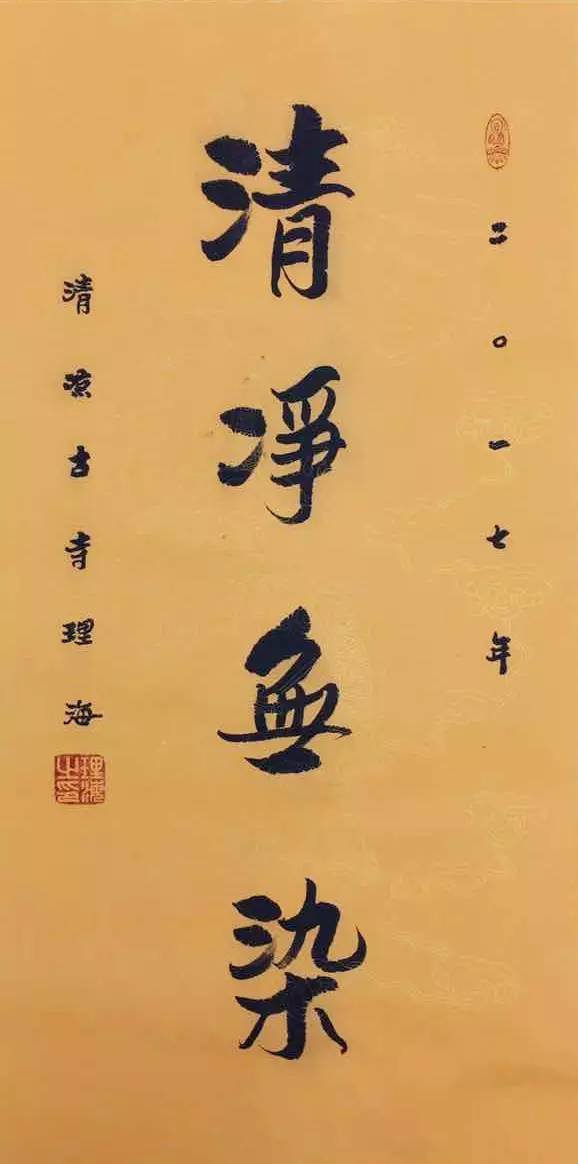 二〇一七年
清凈無染
清凉古寺理海
理海之印